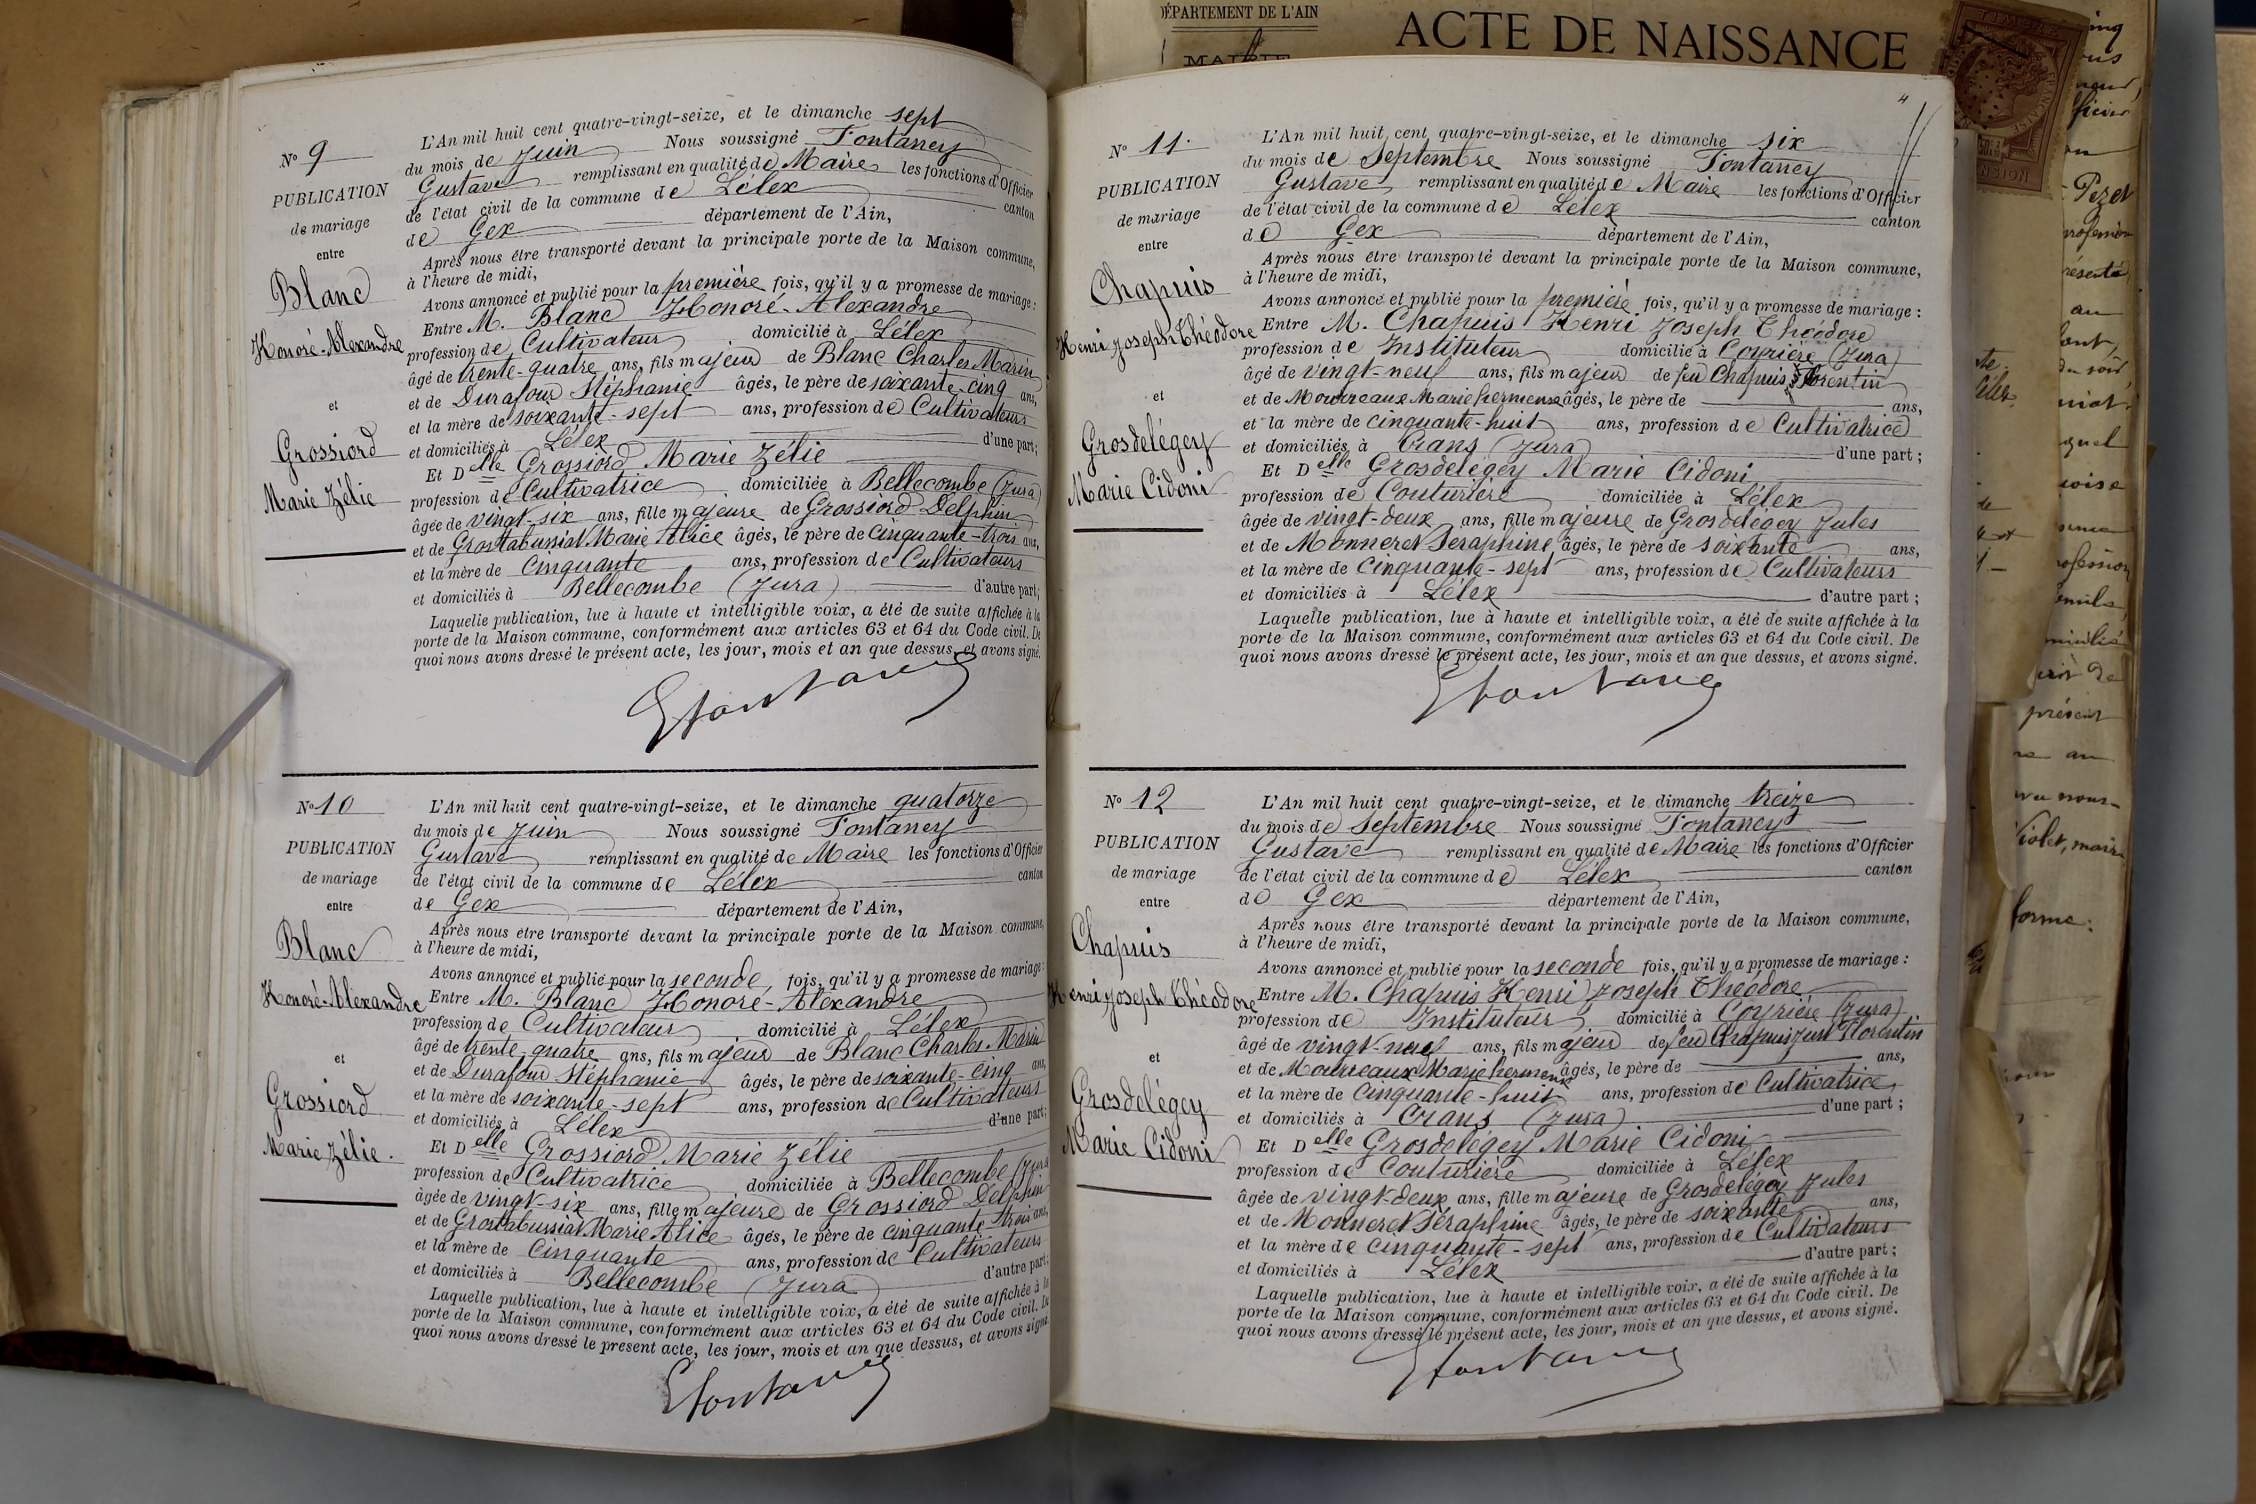 N° 9
PUBLICATION
de mariage
entre
Blanc
Honoré-Alexandre
et
Grossiord
Marie Zélie
L'An mil huit cent quatre-vingt-seize, et le dimanche sept
du mois de Juin Nous soussigné Fontaney
Gustave remplissant en qualité de Maire les fonctions d'Officier
de l'état civil de la commune de Lélex canton
de Gex département de l'Ain,
Après nous être transporté devant la principale porte de la Maison commune,
à l'heure de midi,
Avons annoncé et publié pour la première fois, qu'il y a promesse de mariage :
Entre M. Blanc Honoré-Alexandre
profession de Cultivateur domicilié à Lélex
âgé de trente-quatre ans, fils majeur de Blanc Charles Marin
et de Durafour Stéphanie âgés, le père de soixante-cinq ans,
et la mère de soixante-sept ans, profession de Cultivateurs
et domiciliés à Lélex d'une part ;
Et Delle Grossiord Marie Zélie
profession de Cultivatrice domiciliée à Bellecombe (Jura)
âgée de vingt-six ans, fille majeure de Grossiord Delphin
et de Grostabussiat Marie Alice âgés, le père de cinquante-trois ans,
et la mère de cinquante ans, profession de Cultivateurs
et domiciliés à Bellecombe (Jura) d'autre part ;
Laquelle publication, lue à haute et intelligible voix, a été de suite affichée à la
porte de la Maison commune, conformément aux articles 63 et 64 du Code civil. De
quoi nous avons dressé le présent acte, les jour, mois et an que dessus, et avons signé.
Gfontaney
N° 10
PUBLICATION
de mariage
entre
Blanc
Honoré-Alexandre
et
Grossiord
Marie Zélie.
L'An mil huit cent quatre-vingt-seize, et le dimanche quatorze
du mois de Juin Nous soussigné Fontaney
Gustave remplissant en qualité de Maire les fonctions d'Officier
de l'état civil de la commune de Lélex canton
de Gex département de l'Ain,
Après nous être transporté devant la principale porte de la Maison commune,
à l'heure de midi,
Avons annoncé et publié pour la seconde fois, qu'il y a promesse de mariage :
Entre M. Blanc Honoré-Alexandre
profession de Cultivateur domicilié à Lélex
âgé de trente-quatre ans, fils majeur de Blanc Charles Marin
et de Durafour Stéphanie âgés, le père de soixante-cinq ans,
et la mère de soixante-sept ans, profession de Cultivateurs
et domiciliés à Lélex d'une part ;
Et Delle Grossiord Marie Zélie
profession de Cultivatrice domiciliée à Bellecombe (Jura
âgée de vingt-six ans, fille majeure de Grossiord Delphin
et de Grostabussiat Marie Alice âgés, le père de cinquante trois ans,
et la mère de cinquante ans, profession de Cultivateurs
et domiciliés à Bellecombe (Jura) d'autre part ;
Laquelle publication, lue à haute et intelligible voix, a été de suite affichée à la
porte de la Maison commune, conformément aux articles 63 et 64 du Code civil. De
quoi nous avons dressé le present acte, les jour, mois et an que dessus, et avons signé
Gfontaney
DÉPARTEMENT DE L'AIN
MAIRIE
ACTE DE NAISSANCE
4
N° 11.
PUBLICATION
de mariage
entre
Chapuis
Henri Joseph Théodore
et
Grosdelégey
Marie Cidoni
L'An mil huit cent quatre-vingt-seize, et le dimanche six
du mois de Septembre Nous soussigné Fontaney
Gustave remplissant en qualité de Maire les fonctions d'Officier
de l'état civil de la commune de Lélex canton
de Gex département de l'Ain,
Après nous être transporté devant la principale porte de la Maison commune,
à l'heure de midi,
Avons annoncé et publié pour la première fois, qu'il y a promesse de mariage :
Entre M. Chapuis Henri Joseph Théodore
profession de Instituteur domicilié à Coyrière (Jura)
âgé de vingt-neuf ans, fils majeur de feu Chapuis Florentin
et de Mourreaux Marie hermense âgés, le père de ans,
et la mère de cinquante-huit ans, profession de Cultivatrice
et domiciliés à Crans (Jura) d'une part ;
Et Delle Grosdelégey Marie Cidoni
profession de Couturière domiciliée à Lélex
âgée de vingt-deux ans, fille majeure de Grosdelégey Jules
et de Monneret Seraphine âgés, le père de soixante ans,
et la mère de cinquante-sept ans, profession de Cultivateurs
et domiciliés à Lélex d'autre part ;
Laquelle publication, lue à haute et intelligible voix, a été de suite affichée à la
porte de la Maison commune, conformément aux articles 63 et 64 du Code civil. De
quoi nous avons dressé le présent acte, les jour, mois et an que dessus, et avons signé.
Gfontaney
N° 12
PUBLICATION
de mariage
entre
Chapuis
Henri Joseph Théodore
et
Grosdelégey
Marie Cidoni
L'An mil huit cent quatre-vingt-seize, et le dimanche treize
du mois de Septembre Nous soussigné Fontaney
Gustave remplissant en qualité de Maire les fonctions d'Officier
de l'état civil de la commune de Lélex canton
de Gex département de l'Ain,
Après nous être transporté devant la principale porte de la Maison commune,
à l'heure de midi,
Avons annoncé et publié pour la seconde fois, qu'il y a promesse de mariage :
Entre M. Chapuis Henri Joseph Théodore
profession de Instituteur domicilié à Coyrière (Jura)
âgé de vingt-neuf ans, fils majeur de feu Chapuis Just Florentin
et de Mourreaux Marie hermense âgés, le père de ans,
et la mère de cinquante-huit ans, profession de Cultivatrice
et domiciliés à Crans (Jura) d'une part ;
Et Delle Grosdelégey Marie Cidoni
profession de Couturière domiciliée à Lélex
âgée de vingt-deux ans, fille majeure de Grosdelégey Jules
et de Monneret Séraphine âgés, le père de soixante ans,
et la mère de cinquante-sept ans, profession de Cultivateurs
et domiciliés à Lélex d'autre part ;
Laquelle publication, lue à haute et intelligible voix, a été de suite affichée à la
porte de la Maison commune, conformément aux articles 63 et 64 du Code civil. De
quoi nous avons dressé le présent acte, les jour, mois et an que dessus, et avons signé.
Gfontaney
Pezet
au
présent
Violet, maire
forme.